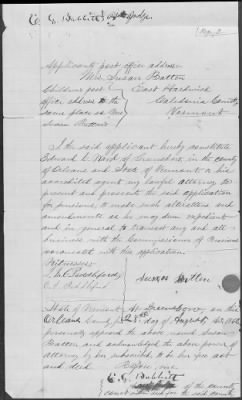 C. C. Babbitt
Judge.
Applicants post office address
Mrs. Susan Batten
Childrens post East Hardwick
office address is the Caledonia County
same place as Mrs Vermont
Susan Batten
I the said applicant hereby constitute
Edward L. of Greensboro, in the county
of Orleans and State of Vermont his
accredited agent my lawful attorney to
present and prosecute the said application
for pensions, to make such alterations and
amendments as he may deem expedient
and in general to transact any and all
business with the Commissioner of Pensions
connected with this application.
Witnesses
Susan Batten
State of Vermont At Greensboro, on this
Orleans County, 8th day of August, AD, 186
personally appeared the above named Susan
Batten and acknowledged the above power of
attorney by her subscribed, to be her free act
and deed. Before me
C. C. Babbitt
of the county
court within and for the said county